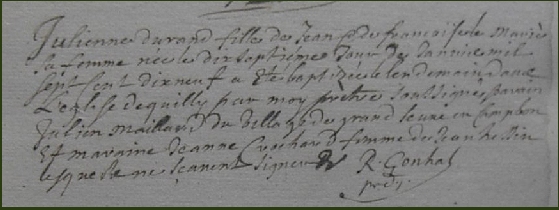 Julienne durand fille de Jean et de francoise le
sa femme née le dix septiéme Jour de Janvier mil
sept cent dix neuf a ete baptizée le lendemain dans
L'eglise de quilly par moy prêtre soussigné parain
Julien maillard du village de grand en
Et maraine Jeanne femme de Jean
lesquels ne scavent signer R. Gonhal